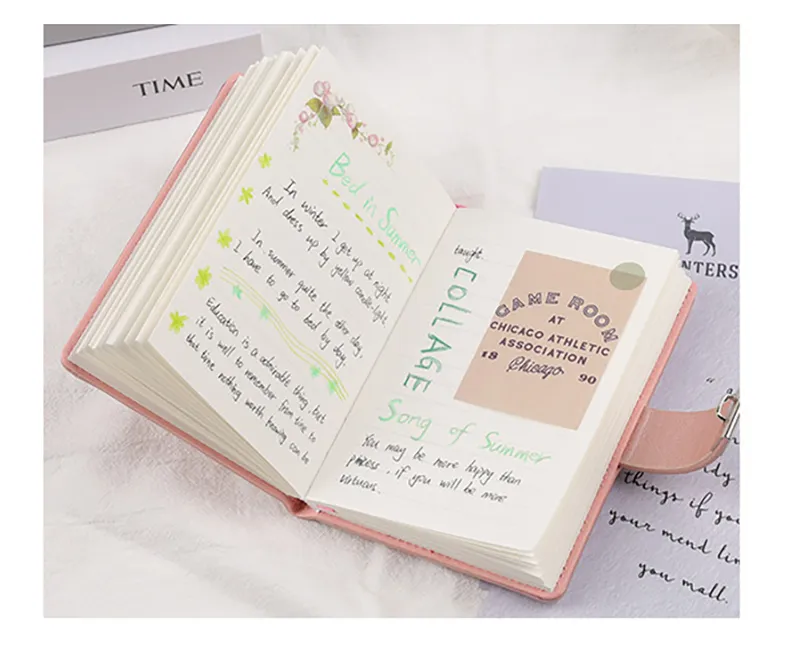 TIME
Bed in Summer
In winter I get up at night
And dress up by yellow candle-light
In summer quite the other day,
I have to go to bed by day.
Education is a admirable thing, but
it is well to remember from time to
that time nothing worth knowing can be
taught.
COLLAGE
GAME ROOM
AT
CHICACO ATHLETIC
ASSOCIATION
18 Chicago 90
Song of Summer
You may be more happy than
princess, if you will be more
virtuous.
NTERS
things if you
your mend lin
you mall.